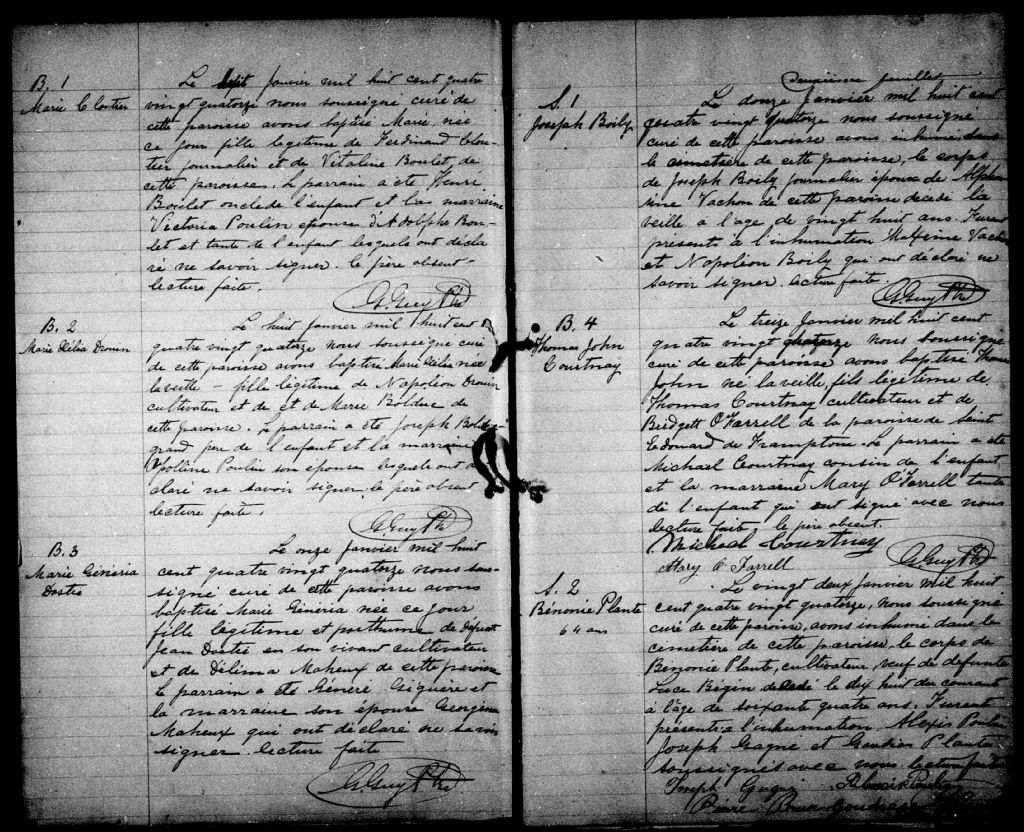 B. 1
Marie Cloutier
Le sept janvier mil huit cent quatre
vingt quatorze nous soussigné curé de
cette paroisse avons baptisé Marie née
ce jour fille legitime de Ferdinand Clou-
tier journalier et de Vitaline Boulet, de
cette paroisse. Le parrain a été Henri
Boulet oncle de l'enfant et la marraine
Victoria Poulin epouse d'Adolphe Bou-
let et tante de l'enfant lesquels ont décla
ré ne savoir signer. le père absent-
lecture faite.
G. Guy Ptre
B. 2
Marie Délia Drouin
Le huit janvier mil huit cent
quatre vingt quatorze nous soussigné curé
de cette paroisse avons baptisé Marie Délia née
la veille - fille légitime de Napoléon Drouin
cultivateur et de et de Marie Bolduc de
cette paroisse. Le parrain a été Joseph Bolduc
grand pere de l'enfant et la marraine
Apolline Poulin son épouse lesquels ont
claré ne savoir signer, le père absent
lecture faite.
G. Guy Ptre
B. 3
Marie Généria
Dostie
Le onze janvier mil huit
cent quatre vingt quatorze nous sous-
signé curé de cette paroisse avons
baptisé Marie Généria née ce jour
fille légitime et posthume de défunt
Jean Dostie en son vivant cultivateur
et de Délima Maheux de cette paroisse
Le parrain a été Généré Giguère et
la marraine son épouse Georgina
Maheux qui ont déclaré ne savoir
signer. lecture faite
G. Guy Ptre
Deuxième feuillet
S. 1
Joseph Boily
Le douze Janvier mil huit cent
quatre vingt quatorze nous soussigné
curé de cette paroisse avons inhumé dans
le cemetière de cette paroisse, le corps
de Joseph Boily journalier époux de Alphon
sine Vachon de cette paroisse décédé la
veille a l'age de vingt huit ans. Furent
present a l'inhumation Maxime Vachon
et Napoléon Boily qui ont déclaré ne
savoir signer. lecture faite.
G. Guy Ptre
B. 4
Thomas John
Courtnay
Le treize Janvier mil huit cent
quatre vingt quatorze nous soussigné
curé de cette paroisse avons baptisé Thomas
John né la veille, fils légitime de
Thomas Courtnay cultivateur et de
Bridgett O'Farrell de la paroisse de Saint
Edouard de Framptom. Le parrain a été
Michael Courtnay cousin de l'enfant
et la marraine Mary O'Farrell tante
de l'enfant qui ont signé avec nous
lecture faite, le père absent.
Michael Courtney
Mary O'Farrell
G. Guy Ptre
S. 2
Bénonie Plante
64 ans
Le vingt deux janvier mil huit
cent quatre vingt quatorze, nous soussigné
curé de cette paroisse, avons inhumé dans le
cemetière de cette paroisse, le corps de
Benonie Plante, cultivateur veuf de defunte
Luce Bégin décédé le dix huit du courant
à l'âge de soixante quatre ans. Furent
présents à l'inhumation Alexis Poulin
Joseph Gagné et Plante
soussignés avec nous lecture faite
Joseph Gagné